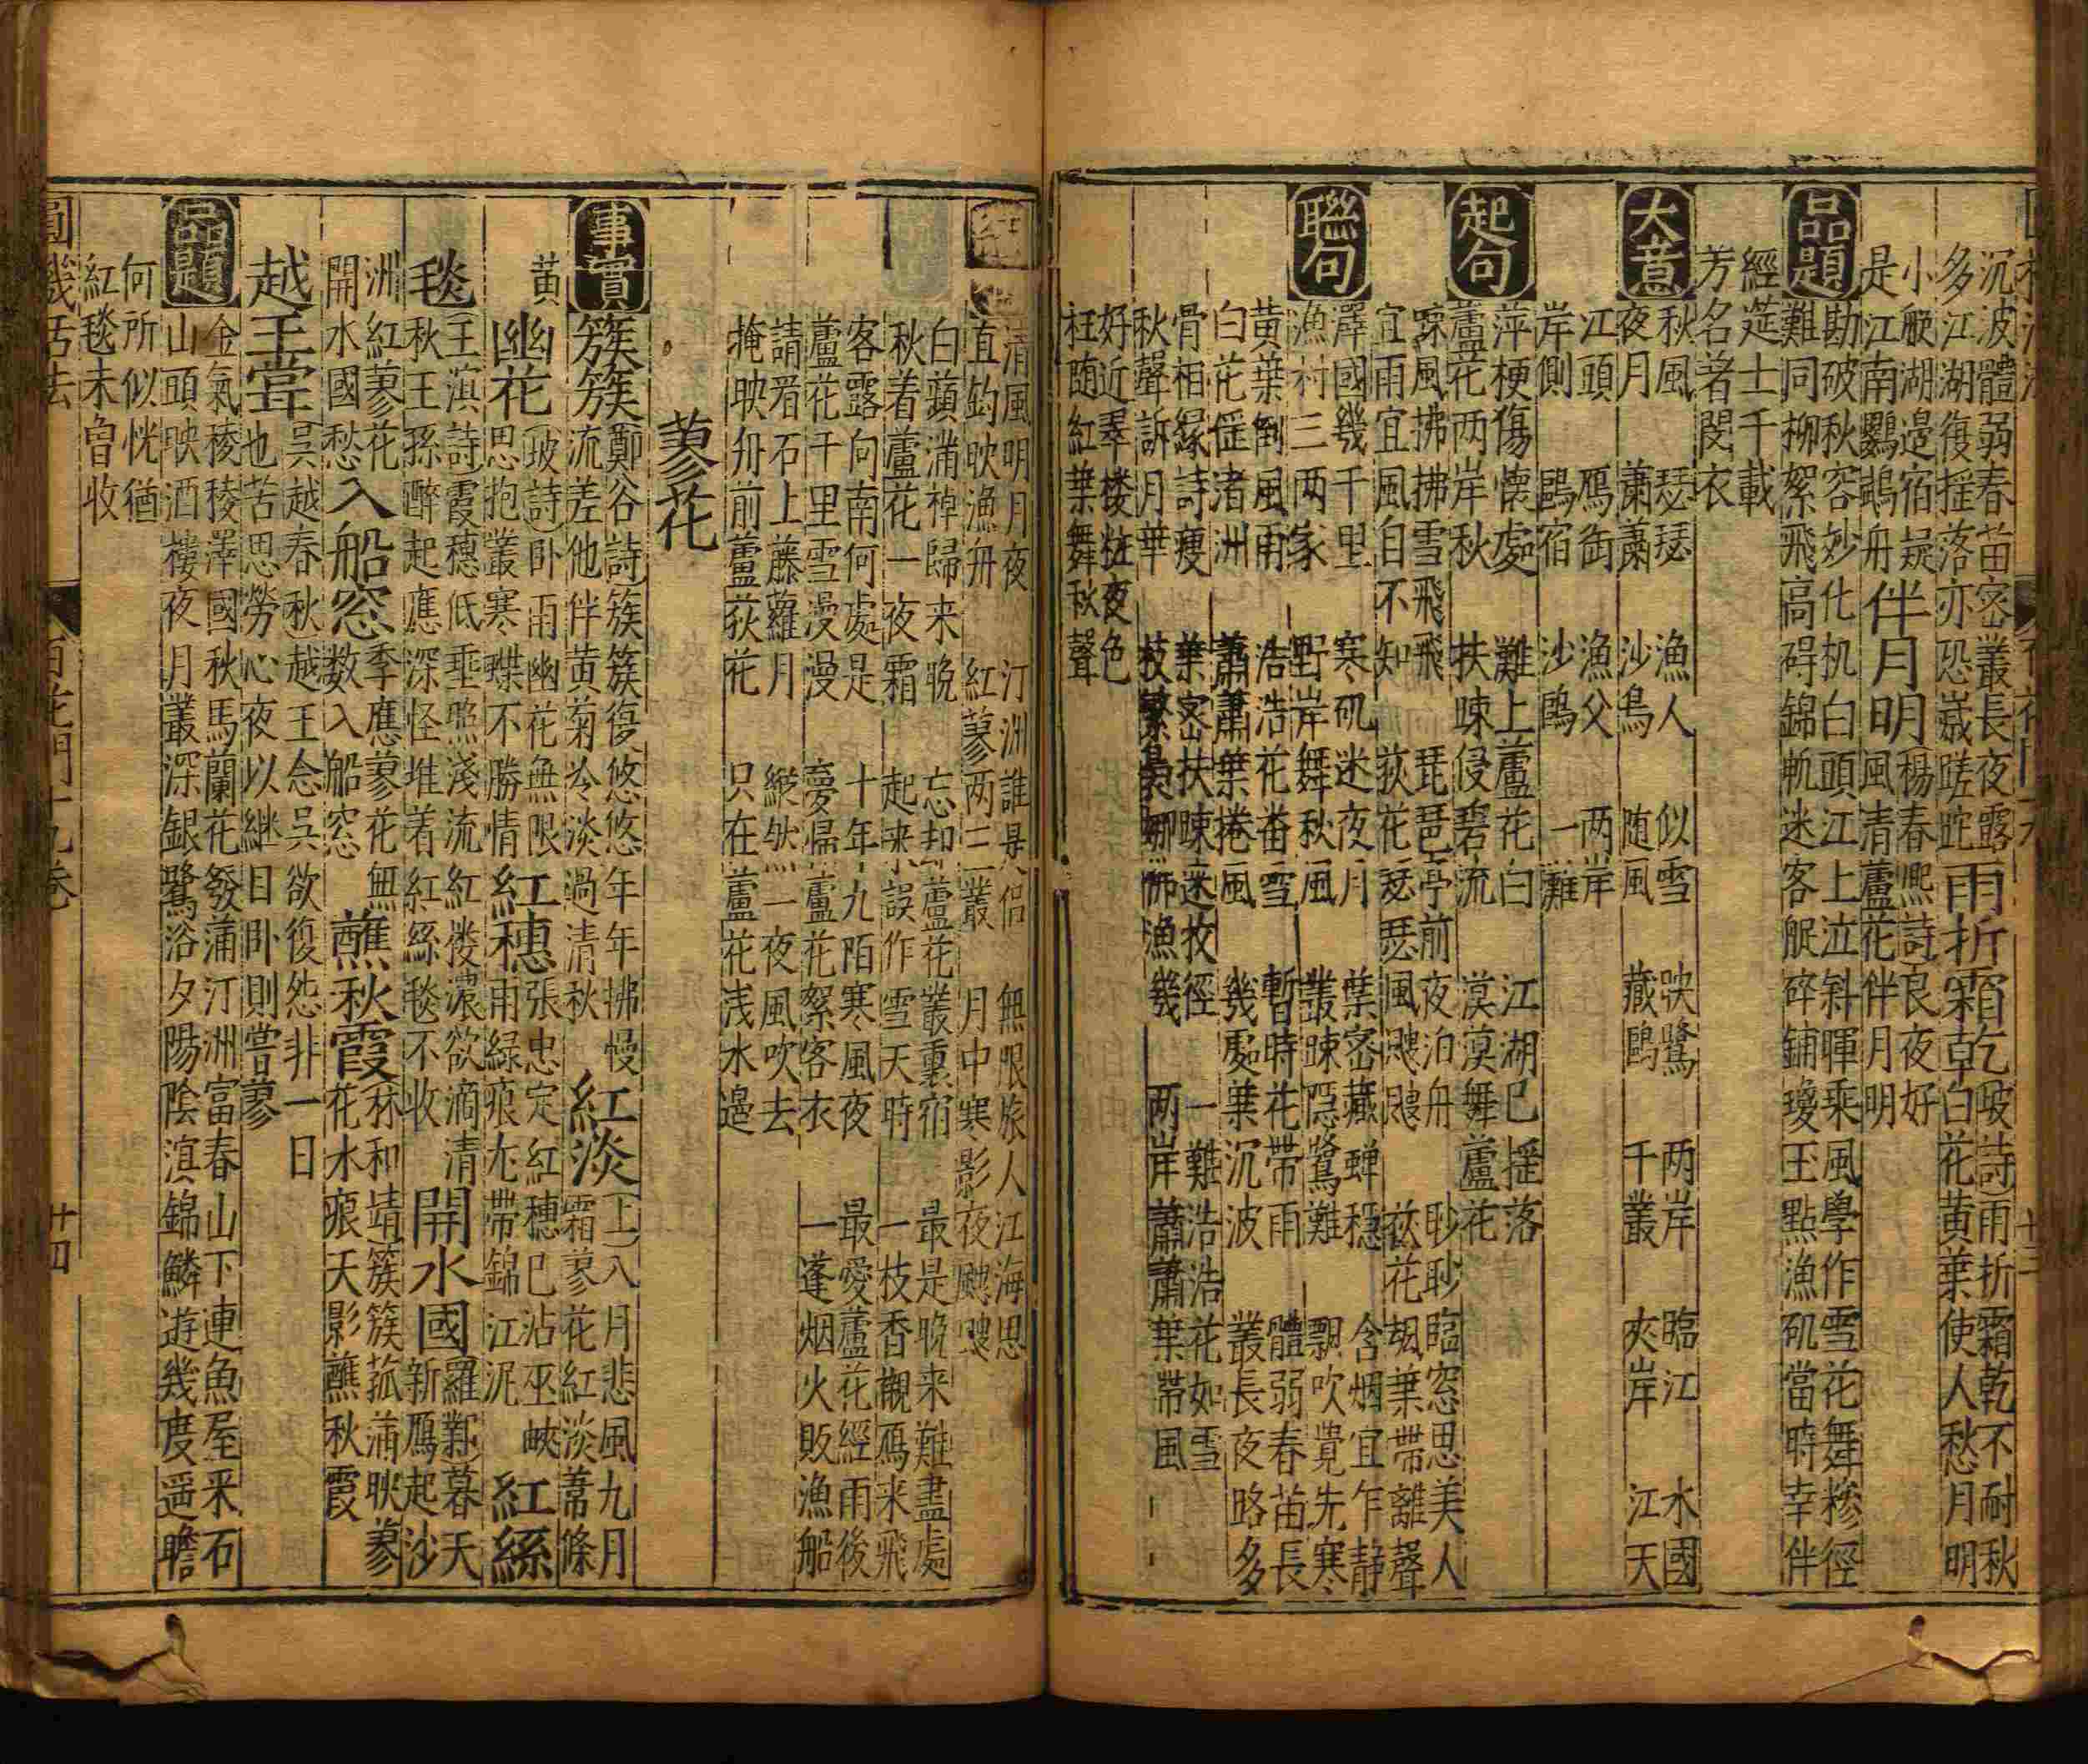 沉波體弱春苗密叢長夜露
多江湖復揺落亦恐嵗蹉跎
雨折霜乾
坡詩雨折霜乾不耐秋
白花黄葉使人愁月明
小艇湖邉宿冣
是江南鸚鵡舟
伴月明
楊春熈詩良夜好
風清蘆花伴月明
品題
勘破秋容妙化机白頭江上泣斜暉乘風學作雪花舞糝徑
難同柳絮飛高碍錦帆迷客艇碎鋪瓊玉點漁矶當時幸伴
經筵士千載
芳名者閔衣
大意
秋風 瑟瑟 漁人 似雪 映鷺 两岸 臨江 水國
夜月 蕭蕭 沙鳥 随風 藏鷗 千叢 夾岸 江天
江頭 鴈銜 漁父 两岸
岸側 鷗宿 沙鷗 一灘
起句
萍梗傷懷處 灘上蘆花白 江湖已揺落
蘆花两岸秋 扶疎侵碧流 漠漠舞蘆花
疎風拂拂雪飛飛 琵琶亭前夜泊舟 眇眇臨窓思美人
宜雨宜風自不知 荻花瑟瑟風颼颼 荻花颯葉帶離聲
聯句
澤國幾千里 寒矶迷夜月 葉密藏蝉穩 含烟宜乍静
漁村三两家 野岸舞秋風 叢疎隠鷺難 飘吹覺先寒
黄葉倒風雨 浩浩花畨雪 暫時花帯雨 體弱春苗長
白花揺渚洲 蕭蕭葉捲風 幾處葉沉波 叢長夜路多
骨相縁詩瘦 葉密扶疎迷牧徑 一灘浩浩花如雪
秋聲訴月華 枝繁 娜 漁幾 两岸蕭蕭葉帯風
好近翠楼粧夜色
枉随紅葉舞秋聲
清風明月夜 汀洲誰是侣 無限旅人江海思
直釣映漁舟 紅蓼两三叢 月中寒影夜颼颼
白蘋滿棹歸来晚 忘却蘆花叢裏宿 最是晚来難盡處
秋着蘆花一夜霜 起来誤作雪天時 一枝香襯鴈来飛
客露向南何處是 十年九陌寒風夜 最愛蘆花經雨後
蘆花千里雪漫漫 夢帰蘆花絮客衣 一蓬烟火販漁船
請看石上藤蘿月 縱然一夜風吹去
掩映舟前蘆荻花 只在蘆花浅水邉
蓼花
事實
簇簇
鄭谷詩簇簇復悠悠年年拂慢
流差他伴黄菊冷淡過清秋
紅淡
上八月悲風九月
霜蓼花紅淡葦條
黄
幽花
坡詩卧雨幽花無限
思抱叢寒蝶不勝情
紅穗
張忠定紅穗已沾巫峽
雨緑痕尤帶錦江泥
紅絲
毬
王滇詩霞穗低垂照淺流紅縷濃欲滴清
秋王孫醉起應深怪堆着紅絲毬不收
開水國
羅鄴暮天
新鴈起沙
洲紅蓼花
開水國愁
入船窓
季應蓼花無
数入船窓
蘸秋霞
林和靖簇簇菰蒲映蓼
花水痕天影蘸秋霞
越王甞
吳越春秋越王念吳欲復怨非一日
也苦思勞心夜以継目卧則嘗蓼
品題
金氣稜稜澤國秋馬蘭花發蒲汀洲富春山下連魚屋采石
山頭映酒樓夜月叢深銀鷺浴夕陽陰滇錦鱗遊幾度遥瞻
何所似恍猶
紅毯未曽收
圓機活法
百花門十九卷
廿四